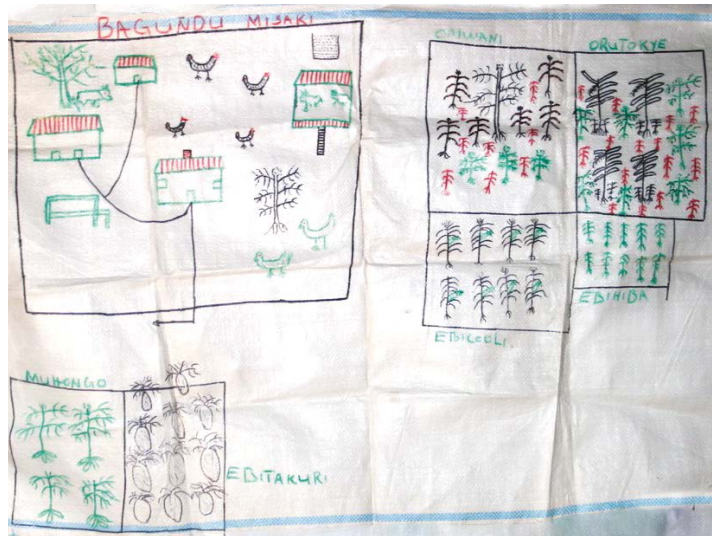 BAGUNDU MISAKI
OMWANI
ORUTOKYE
EBIHIBA
EBICOOLI.
MUHONGO
EBITAKURI